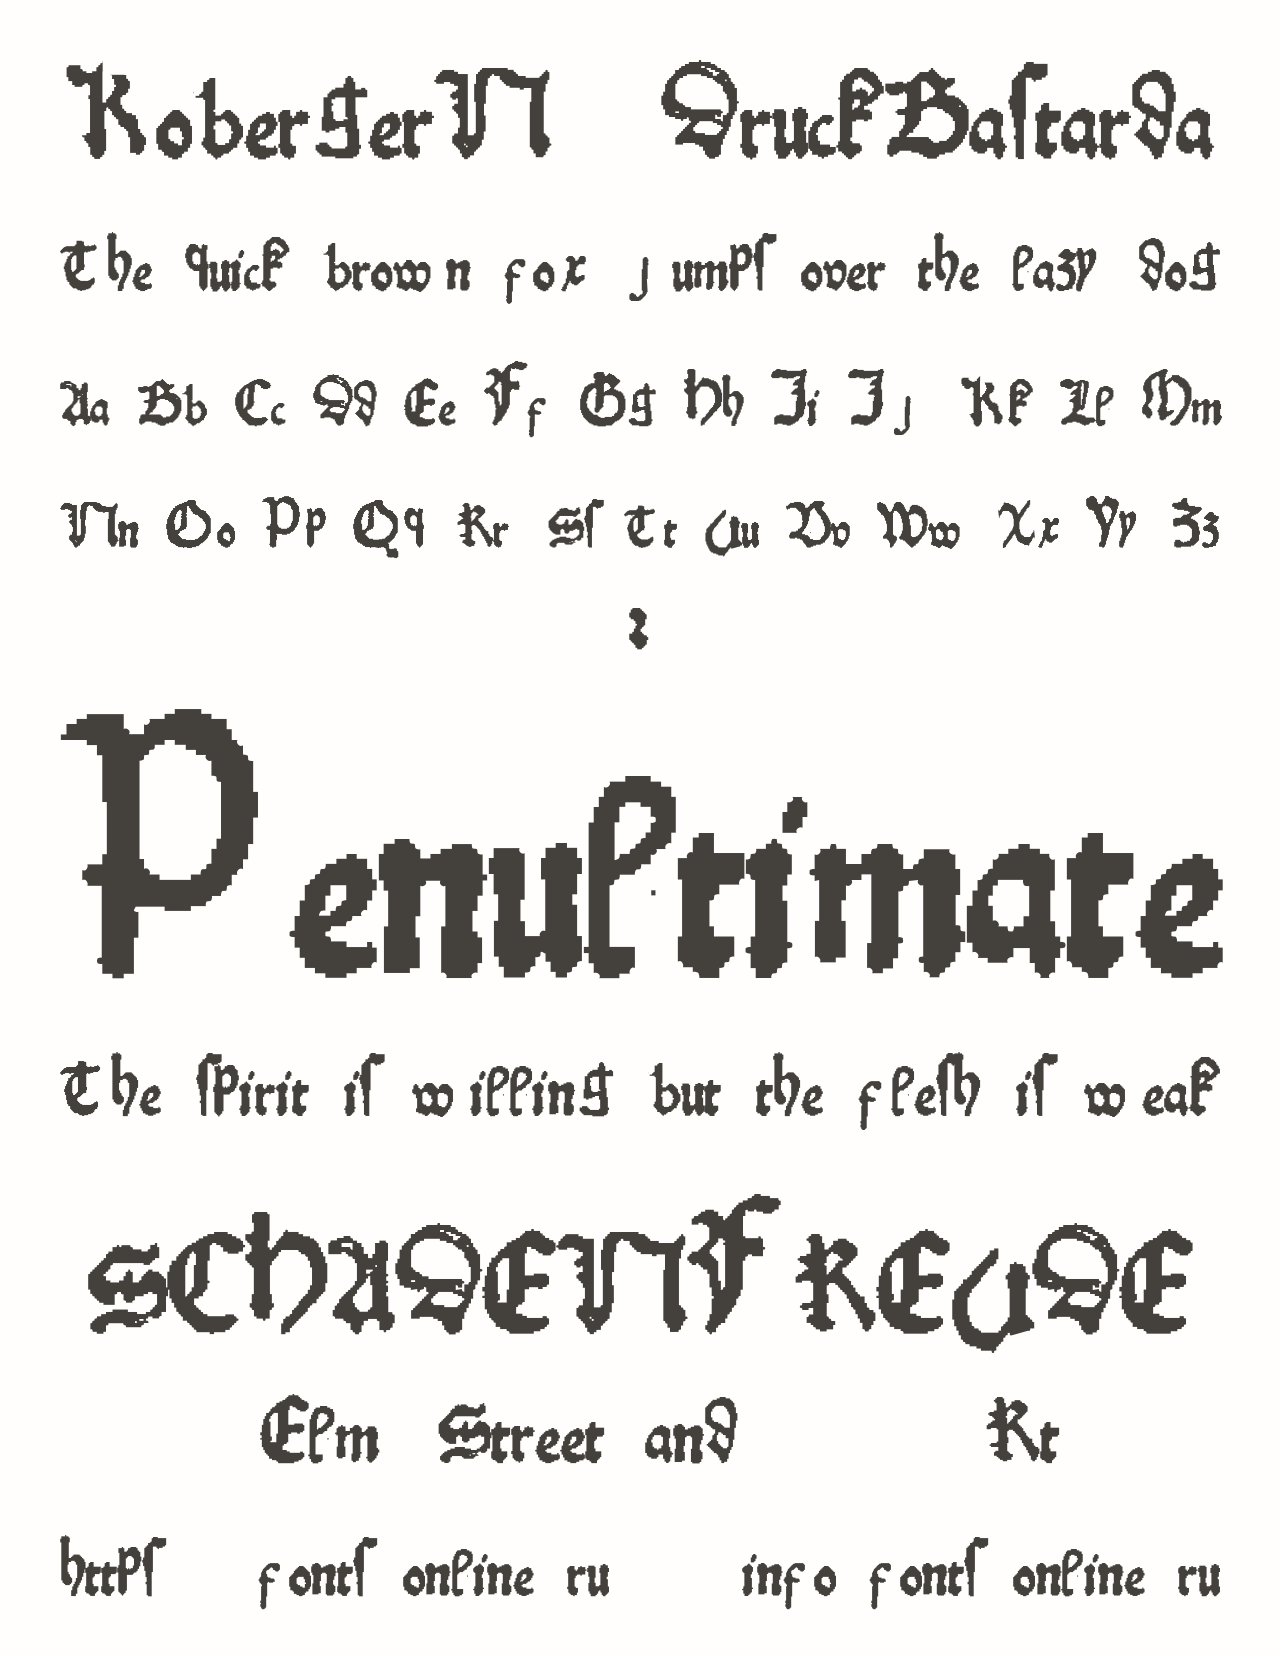 KobergerN DruckBaſtarda
The quick brown fox jumpſ over the lazy dog
Aa Bb Cc Dd Ee Ff Gg Hh Ii Jj Kk Ll Mm
Nn Oo Pp Qq Rr Sſ Tt Uu Vv Ww Xx Yy Zz
Penultimate
The ſpirit iſ willing but the fleſh iſ weak
SCHADENFREUDE
Elm Street and Rt
httpſ fontſ online ru info fontſ online ru